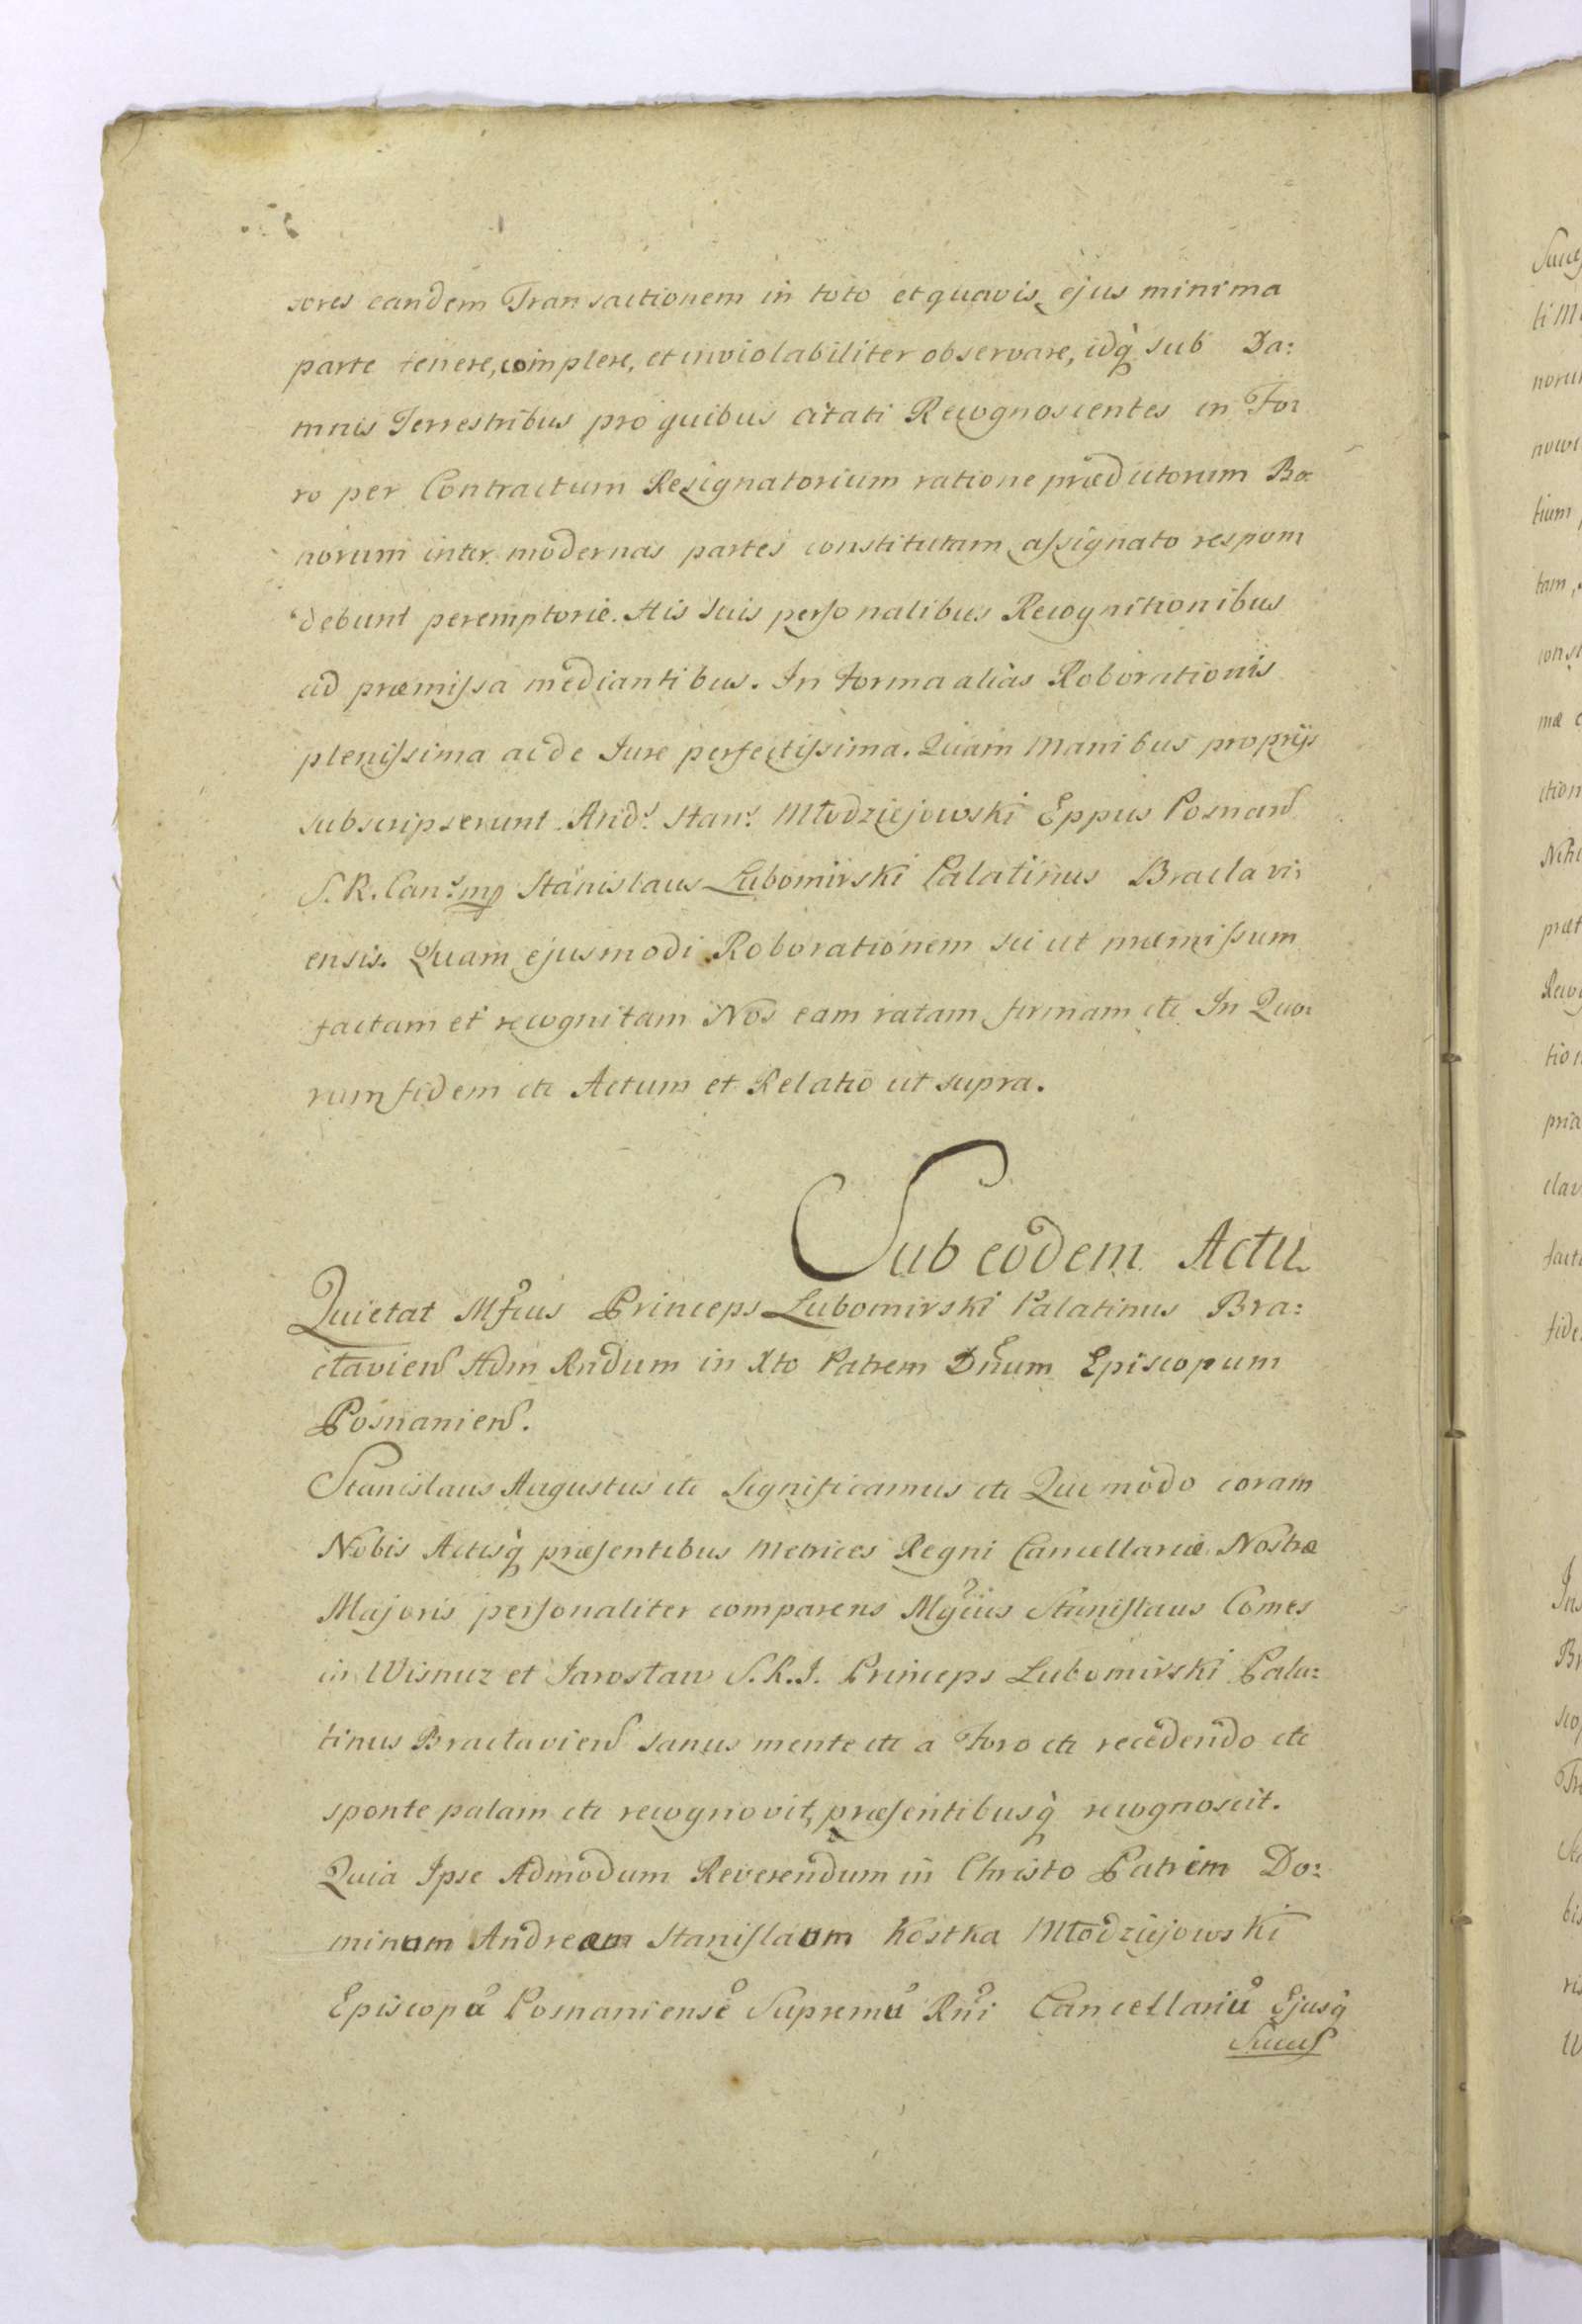 sores eandem Transactionem in toto et quavis ejus minima
parte tenere, complere, et inviolabiliter observare, idq̀ sub Da:
mnis Terrestribus pro quibus citati Recognoscentes in Fo:
ro per Contractum Resignatorium ratione prædictorum Bo:
norum inter modernas partes constitutam aſsignato respon:
debunt peremptorie. His suis perſonalibus Recognitionibus
ad præmiſsa mediantibus. In forma alias Roborationis
pleniſsima ac de Jure perfectiſsima. Quam Manibus proprijs
subscripserunt Andr. Stan. Młodziejowski Eppus Posnan
S. R. Canc. mp Stanislaus Lubomirski Palatinus Braclavi:
ensis. Quam ejusmodi Roborationem sic ut præmiſsum
factam et recognitam Nos eam ratam firmam etc In Quo:
rum fidem etc Actum et Relatio ut supra.
Sub eodem Actu
Quietat Mfcus Princeps Lubomirski Palatinus Bra:
clavien Adm Rndum in Xto Patrem Dnum Episcopum
Posnanien.
Stanislaus Augustus etc Significamus etc Quia modo coram
Nobis Actisq̀ præſentibus Metrices Regni Cancellariæ Nostræ
Majoris perſonaliter comparens Mgcus Staniſlaus Comes
in Wisnicz et Jarosław S. R. J. Princeps Lubomirski Pala:
tinus Braclavien sanus mente etc a Foro etc recedendo etc
sponte palam etc recognovit, præſentibusq̀ recognoscit.
Quia Ipse Admodum Reverendum in Christo Patrem Do:
minum Andream Staniſlaum Kostka Młodziejowski
Episcopū Posnaniensē Supremū Rni Cancellariū Ejusq̀
Succeſ